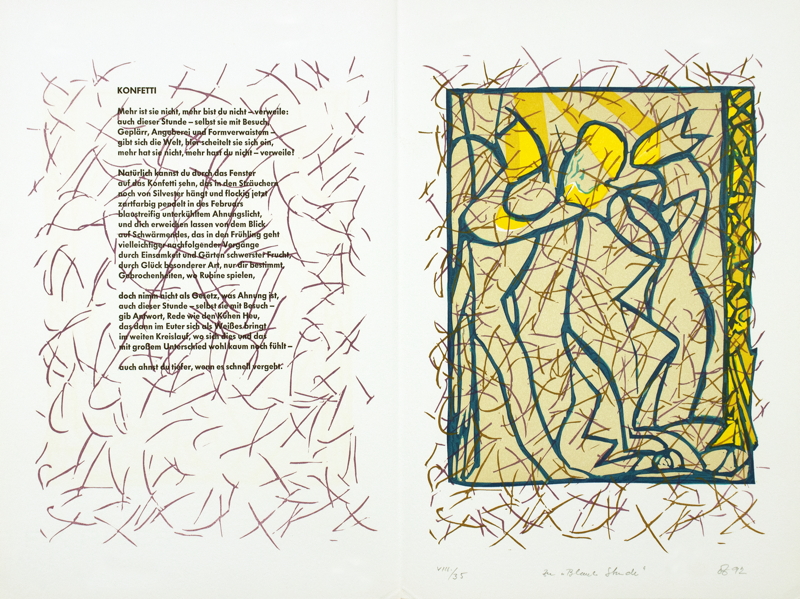 KONFETTI
Mehr ist sie nicht, mehr bist du nicht – verweile:
auch dieser Stunde – selbst sie mit Besuch,
Geplärr, Angeberei und Formverwaistem –
gibt sich die Welt, hier scheitelt sie sich ein,
mehr hat sie nicht, mehr hast du nicht – verweile!
Natürlich kannst du durch das Fenster
auf das Konfetti sehn, das in den Sträuchern
noch von Silvester hängt und flockig jetzt
zartfarbig pendelt in des Februars
blaustreifig unterkühltem Ahnungslicht,
und dich erweichen lassen von dem Blick
auf Schwärmendes, das in den Frühling geht
vielleichtiger nachfolgender Vorgänge
durch Einsamkeit und Gärten schwerster Frucht,
durch Glück besonderer Art, nur dir bestimmt,
Gebrochenheiten, wo Rubine spielen,
doch nimm nicht als Gesetz, was Ahnung ist,
auch dieser Stunde – selbst sie mit Besuch –
gib Antwort, Rede wie den Kühen Heu,
das dann im Euter sich als Weißes bringt
im weiten Kreislauf, wo sich dies und das
mit großem Unterschied wohl kaum noch fühlt –
auch ahnst du tiefer, wenn es schnell vergeht.
VIII/35 Zu „Blaue Stunde" 92